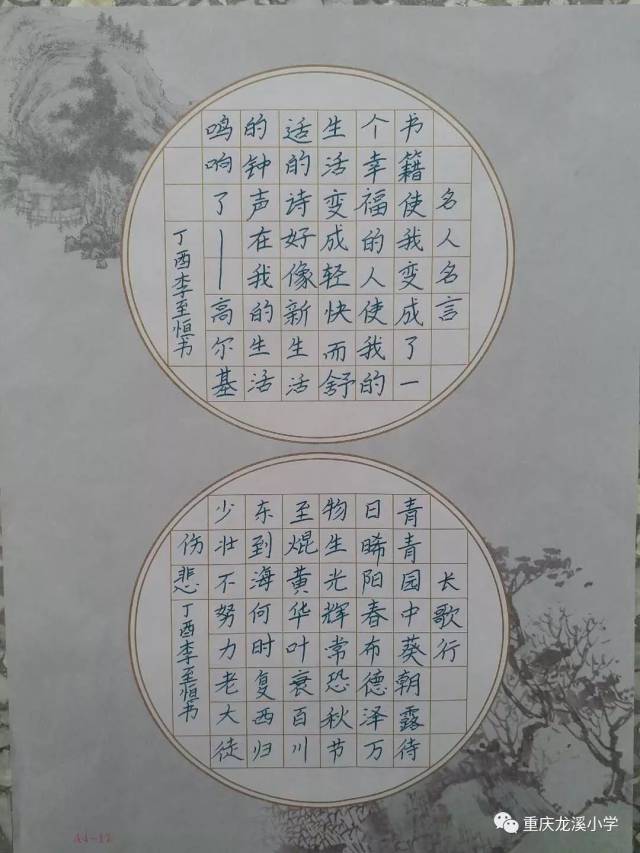 名人名言
书籍使我变成了一
个幸福的人使我的
生活变成轻快而舒
适的诗好像新生活
的钟声在我的生活
鸣响了——高尔基
丁酉李至恒书
长歌行
青青园中葵朝露待
日晞阳春布德泽万
物生光辉常恐秋节
至焜黄华叶衰百川
东到海何时复西归
少壮不努力老大徒
伤悲 丁酉李至恒书
A4-12
重庆龙溪小学